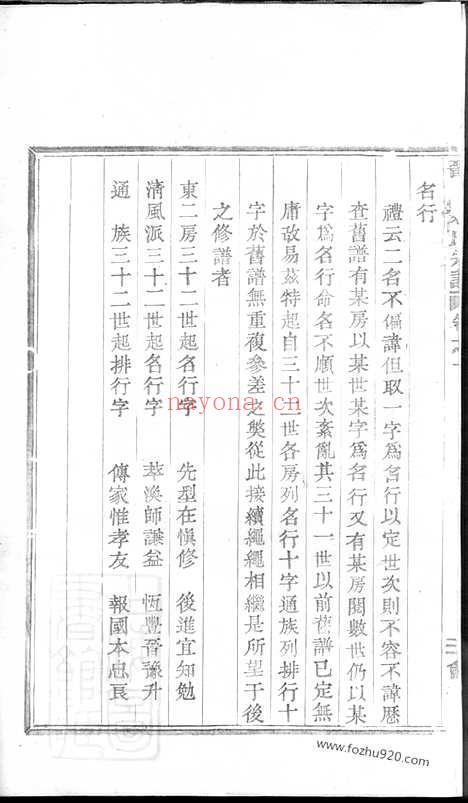 名行
禮云二名不偏諱但取一字爲名行以定世次則不容不諱歷
查舊譜有某房以某世某字爲名行又有某房閱數世仍以某
字爲名行命名不順世次紊亂其三十一世以前舊譜已定無
庸改易茲特起自三十二世各房列名行十字通族列排行十
字於舊譜無重複參差之獘從此接續繩繩相繼是所望于後
之修譜者
東二房三十二世起名行字 先型在愼修 後進宜知勉
淸風派三十二世起名行字 萃渙師謙益 恆豐晉豫升
通族三十二世起排行字 傳家惟孝友 報國本忠良
nayona.cn
www.fozhu920.com